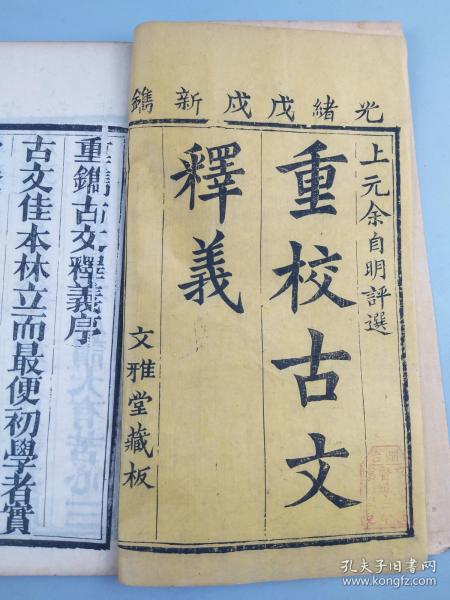 光緒戊戌新鐫
上元余自明評選
重校古文
釋義
文雅堂藏板
重鐫古文釋義序
古文佳本林立而最便初學者實
孔夫子旧书网
www.kongfz.com